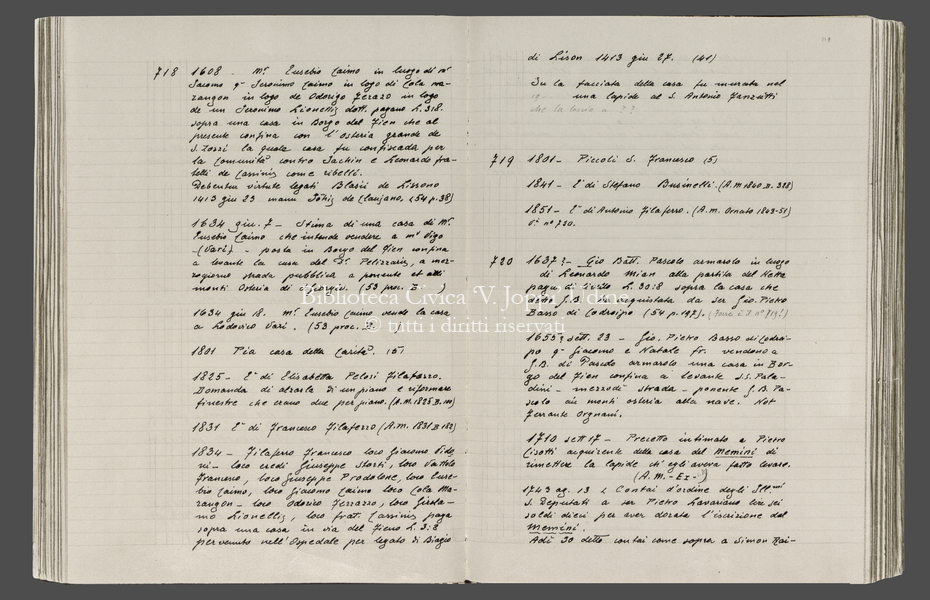 718 1608 - Mr Eusebio Caimo in luogo di mr
Jacomo q- Jeronimo Caimo in logo di Cola ma-
rangon in logo de Odorigo Ferazo in logo
de un Jeronimo Lionettis dott. pagano L.3:8.
sopra una casa in Borgo del Fien che al
presente confina con l'osteria grande de
S. Zorzi la quale casa fu confiscada per
la Comunità contro Jachin e Leonardo fra-
telli de Cassinis come ribelli.
Debentur virtute legati Blasii de Lissono
1413 giu 23 manu Johis de Clausano. (54 p.38)
1634 giu. 7 - Stima di una casa di Mr.
Eusebio Caimo che intende vendere a mr Vigo
(Vari) - posta in Borgo del Fien confina
a levante la casa del Sr. Pelizzaris, a mez-
zogiorno strada pubblica a ponente et alli
monti Osteria di S. Giorgio. (53 proc. B. )
1634 giu 18. Mr. Eusebio Caimo vende la casa
a Lodovico Vari. (53 proc. B. )
1801 Pia casa della Carità. (5)
1825 - Ea di Elisabetta Pelosi Filaferro.
Domanda di alzarla di un piano e riformare
finestre che erano due per piano. (A.m. 1825 B. 110)
1831 Ea di Francesco Filaferro (A.m. 1831 B 182)
1834 - Filaferro Francesco loco Giacomo Fide,
ni - loco eredi Giuseppe Storti, loco Vattolo
Francesco, loco Giuseppe Prodolone, loco Euse-
bio Caimo, loco Giacomo Caimo loco Cola Ma-
rangon - loco Odorico Ferrazzo, loco Girola-
mo Lionettis, loco frati Cassinis paga
sopra una casa in via del Fieno L. 3:8
pervenuto nell'Ospedale per legato di Biagio
di Lison 1413 giu 27. (41)
Su la facciata della casa fu murata nel
19 una lapide al S. Antonio Fanzutti
719 1801 - Piccoli S. Francesco (5)
1841 - Ea di Stefano Businelli. (A.M 1840 B. 328)
1851 - Ea di Antonio Filaferro. (A.m. Ornato 1843-51)
Va. no 720.
720 1637 - Gio Batt. Pascolo armarolo in luogo
di Leonardo Mian alla partita del Netta
paga di livello L. 30:8 sopra la casa che
esso G.B. ha acquistata da ser Gio. Pietro
Basso di Codroipo (54 p.197). (Forse è il no 719!)
1655 sett. 23 - Gio. Pietro Basso di Codroi-
po q- Giacomo e Natale fr. vendono a
G.B. di Pascolo armarolo una casa in Bor-
go del Fien confina a levante SS. Pala-
dini - mezzodì strada - ponente G.B. Pa-
scolo ai monti osteria alla nave. Not
Ferrante Orgnani.
1710 sett 17 - Precetto intimato a Pietro
Cisotti acquirente della casa del Memini di
rimettere la lapide ch'egli aveva fatto levare.
(A.M. - Ex -)
1743 ag. 13 Contai d'ordine degli Ill.mi
S. Deputati a ser Pietro Lavariano lire sei
soldi dieci per aver dorata l'iscrizione del
Memini.
Adì 30 detto contai come sopra a Simon Rai-
Biblioteca Civica "V. Joppi" Udine
© tutti i diritti riservati